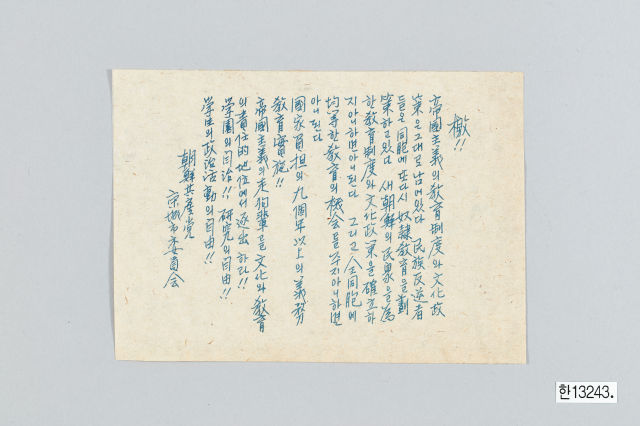 檄!!
帝國主義의 敎育制度와 文化政
策은 그대로 남어있다 民族反逆者
들은 同胞에 또다시 奴隷敎育을 劃
策하고있다 새朝鮮의 民衆을 爲
한 敎育制度와 文化政策을 確立하
지아니하면아니된다 그리고 全同胞에
均等한 敎育의 機會를 주지아니하면
아니된다
國家負担의 九個年以上의 義務
敎育實施!!
帝國主義의 走狗輩를 文化와 敎育
의 責任的地位에서 逐出하라!!
學園의 自治!! 硏究의 自由!!
學生의 政治活動의 自由!!
朝鮮共産党
京城市委員会
한13243.